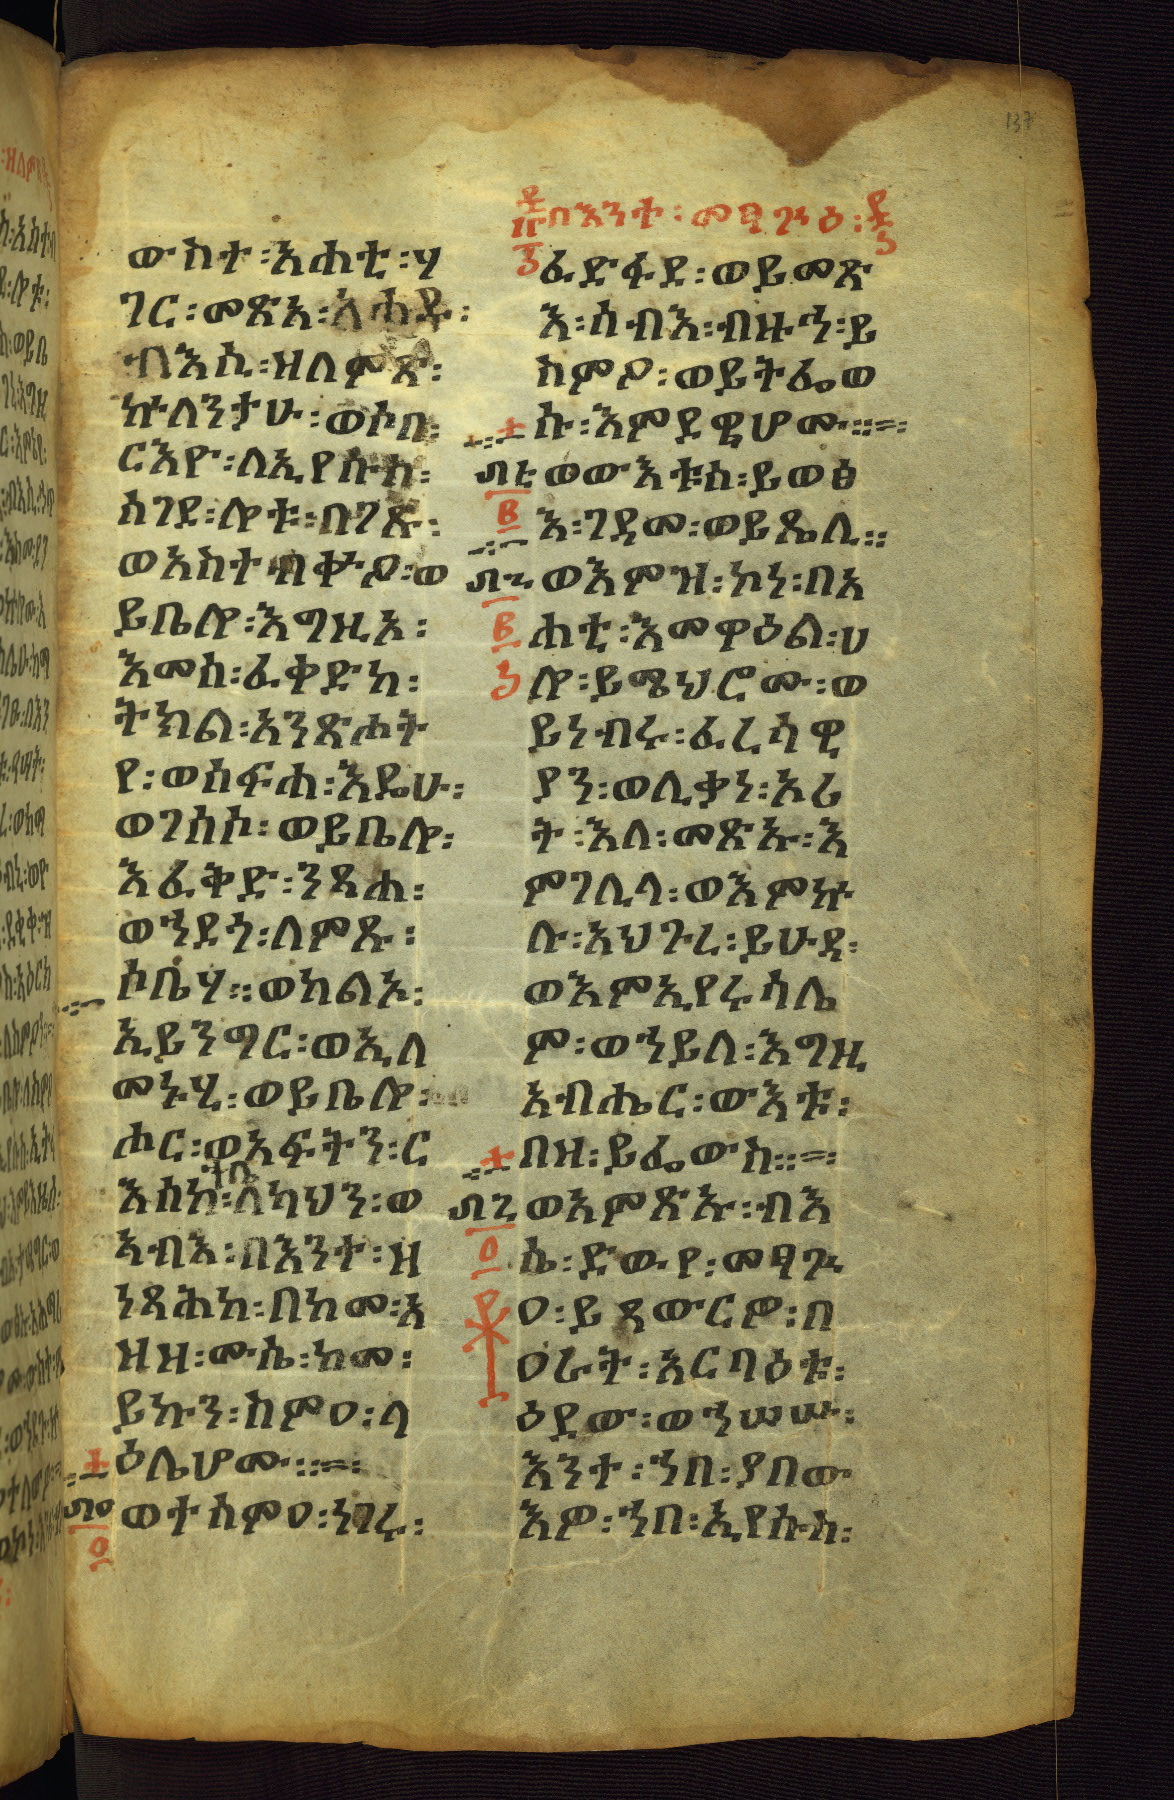 ውስተ፡አሐቲ፡ሃ
ገር፡መጽአ፡አሐዱ፡
ብእሲ፡ዘለምጽ፡
ኵለንታሁ፡ወሶበ፡
ርእዮ፡ለኢየሱስ፡
ሰገደ፡ሎቱ፡በገጹ፡
ወአስተብቍዖ፡ወ
ይቤሎ፡እግዚኦ፡
እመሰ፡ፈቀድከ፡
ትክል፡አንጽሖት
የ፡ወሰፍሐ፡እዴሁ፡
ወገሰሶ፡ወይቤሎ፡
እፈቅድ፡ንጻሕ፡
ወኀደጎ፡ለምጹ፡
ሶቤሃ።ወከልኦ፡
ኢይንግር፡ወኢለ
መኑሂ፡ወይቤሎ፡
ሑር፡ወአፍትን፡ር
እሰከ፡ለካህን፡ወ
አብእ፡በእንተ፡ዘ
ነጻሕከ፡በከመ፡አ
ዘዘ፡ሙሴ፡ከመ፡
ይኩን፡ስምዐ፡ላ
ዕሌሆሙ።
ወተሰምዐ፡ነገሩ፡
በእንተ፡መፃጉዕ፡
ፈድፋደ፡ወይመጽ
እ፡ሰብእ፡ብዙኅ፡ይ
ስምዖ፡ወይትፌወ
ሱ፡እምደዌሆሙ።
ወውእቱሰ፡ይወፅ
እ፡ገዳመ፡ወይጼሊ።
ወእምዝ፡ኮነ፡በአ
ሐቲ፡እመዋዕል፡ሀ
ሎ፡ይሜህሮሙ፡ወ
ይነብሩ፡ፈሪሳዊ
ያን፡ወሊቃነ፡ኦሪ
ት፡እለ፡መጽኡ፡እ
ምገሊላ፡ወእምኵ
ሉ፡አህጉረ፡ይሁዳ፡
ወእምኢየሩሳሌ
ም፡ወኀይለ፡እግዚ
አብሔር፡ውእቱ፡
በዘ፡ይፌውስ።
ወአምጽኡ፡ብእ
ሴ፡ድውየ፡መፃጉ
ዐ፡ይጸውርዎ፡በ
ዐራት፡አርባዕቱ፡
ዕደው፡ወኀሠሡ፡
እንተ፡ኀበ፡ያበው
እዎ፡ኀበ፡ኢየሱስ፡